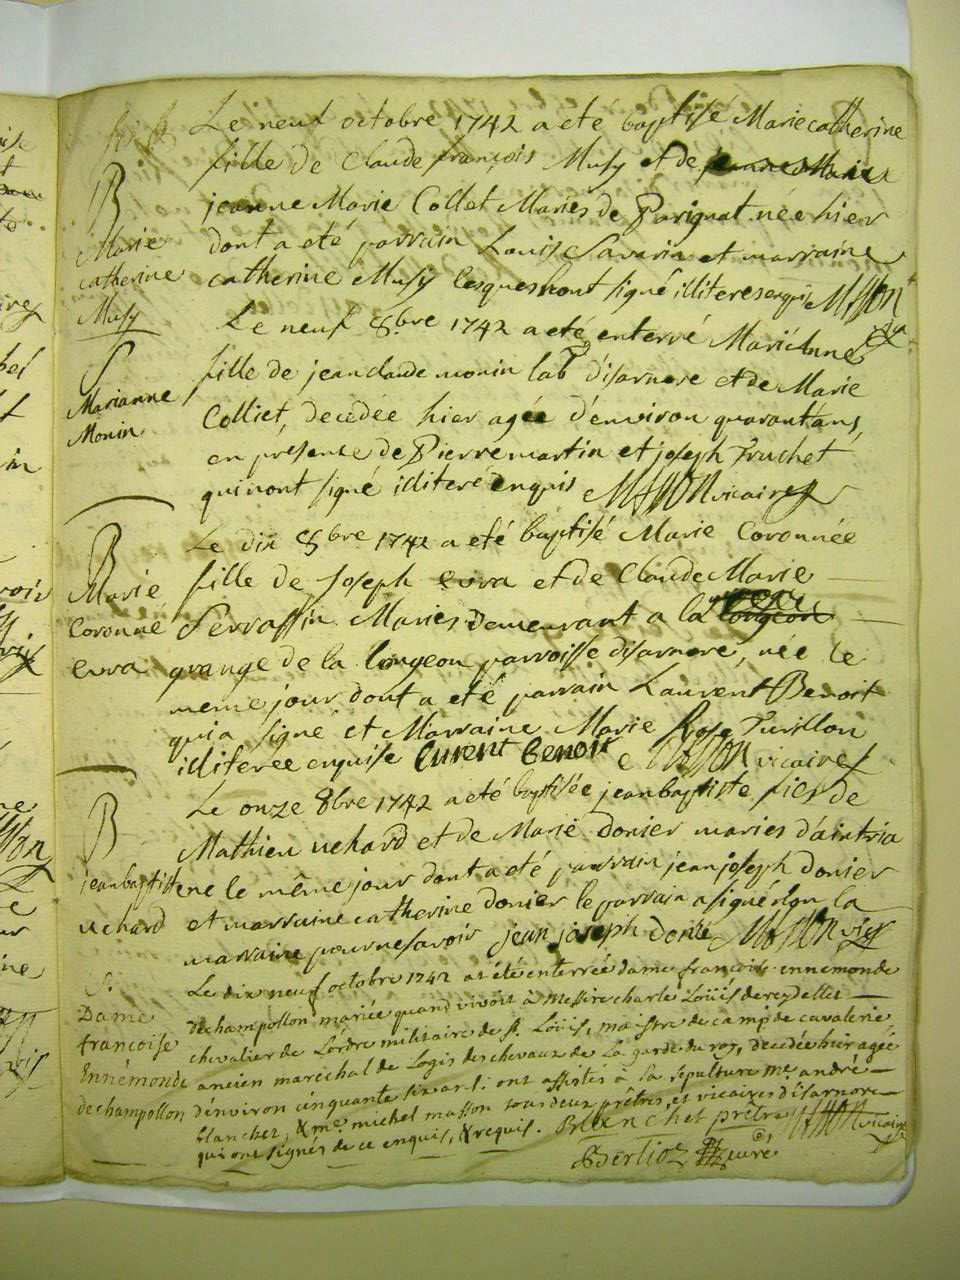 B
Marie
catherine
Musy
Le neuf octobre 1742 a eté baptisé Marie catherine
fille de Claude françois Musy et de jeanne Marie
jeanne Marie Collet Maries de Parignat née hier
dont a eté parrain Louis Savarin et marraine
catherine Musy lesquels nont signé illiteres enquis Masson
S
Marianne
Monin
Le neuf 8bre 1742 a eté enterré Marie Anne
fille de jean claude monin lab d'isarnore et de Marie
Colliet, decedée hier agée d'environ quarant ans,
en présence de Pierre martin et joseph Truchet
qui n'ont signé illiteré enquis Masson vicaire
B
Marie
Coronné
evra
Le dix 8bre 1742 a eté baptisé Marie Coronnée
fille de Joseph evra et de Claude Marie
Serrassin Maries demeurant a la longeon
grange de la longeon parroisse disarnore, née le
meme jour dont a eté parrain Laurent Benoit
qui a signé et Marraine Marie Rose Turillon
illiteree enquise lurent benoit Masson vicaire
B
jean baptiste
uchard
Le onze 8bre 1742 a eté baptisée jean baptiste fils de
Mathieu uchard et de Marie donier maries d'aintria
ne le même jour dont a eté parrain jean joseph donier
et marraine catherine donier le parrain a signé non la
marraine pour ne savoir jean joseph donié Masson vic
S.
Dame
françoise
Ennémonde
dechampollon
Le dix neuf octobre 1742 a été enterrée dame françoise ennemonde
dechampollon mariée quand vivoit à Messire charle Loüis dereydellet
chevalier de Lordre militaire de st. Loüis, maistre de camp de cavalerie
ancien maréchal de Logis des chevaux de La garde du roy, decedée hier agée
d'environ cinquante six ans: ont assistés à la sepulture me. andré
blanchet, & me. michel masson tous deux prêtres et vicaires d'isarnore
qui ont signés de ce enquis, & requis. Blanchet prêtre Masson vicaire
Berlioz curé